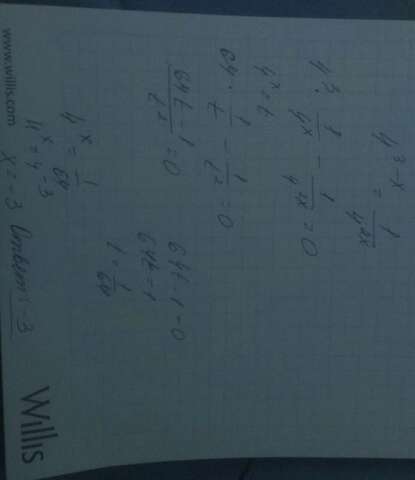 4^{3-x} = \frac{1}{4^{2x}}
4^3 \cdot \frac{1}{4^x} - \frac{1}{4^{2x}} = 0
4^x = t
64 \cdot \frac{1}{t} - \frac{1}{t^2} = 0
\frac{64t - 1}{t^2} = 0
64t - 1 = 0
64t = 1
t = \frac{1}{64}
4^x = \frac{1}{64}
4^x = 4^{-3}
x = -3 Ответ: -3
www.willis.com
Willis